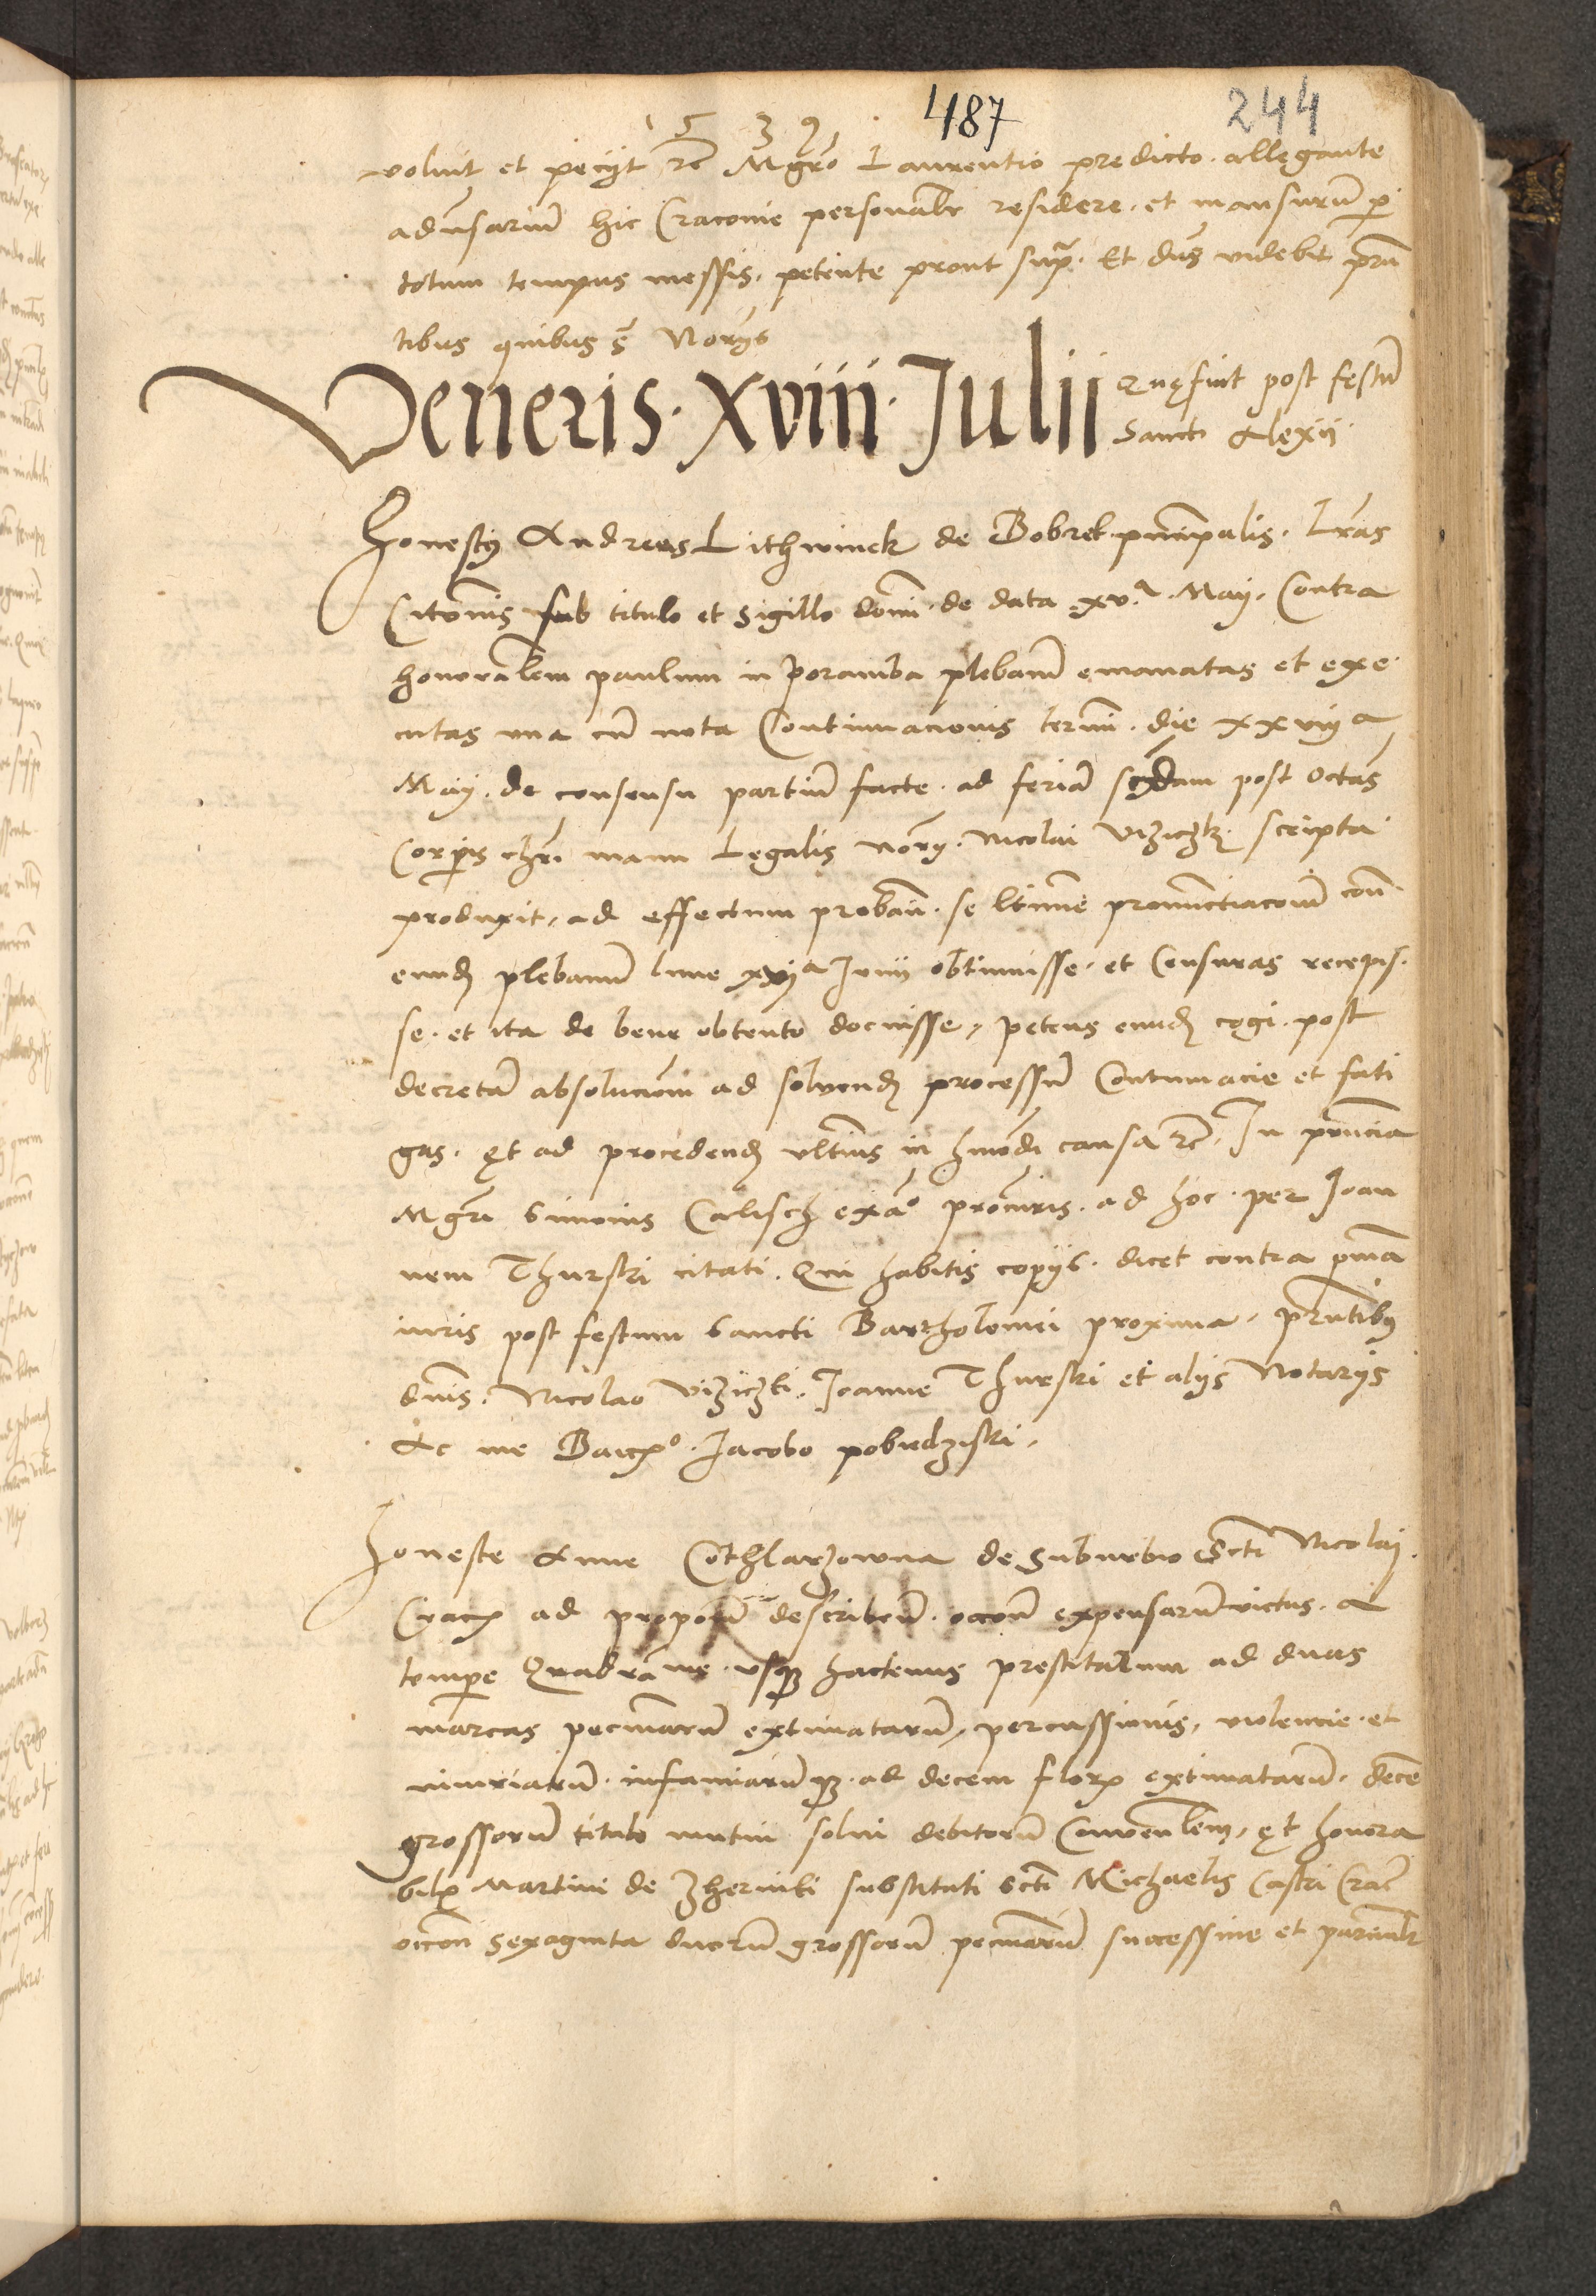 487 244
1 5 3 9
voluit et peciit rc Mgro Laurentio predicto allegante
aduersarium hic Cracovie personalr residere et mansurum per
totum tempus messis, petente prout supra. Et dns videbit presen
tibus quibus s Noriis
Veneris · xviii · Julii Que fuit post festum
Sancti Alexii
Honestus Andreas Lithwinek de Bobrek principalis. Lras
Citonis sub titulo et sigillo domi. de data xv.a May. Contra
honorablem paulum in poramba plebanum emanatas et exe
cutas una cum nota Continuacionis termini. die xxviia
May. de consensu partium facte ad feriam scdam post octas
Corporis chri manu Legalis nory. Nicolai Viziczky scripta
produxit, ad effectum proband. se ltimme pronunctiacoem con
eundem plebanum lune xvia Junii obtinuisse et Censuras recepis
se. et ita de bene obtento docuisse, petens eundem cogi post
decretam absolucoem ad solvendum processum Contumacie et fati
gas. et ad procedendum ulterius in hmodi causa rc. In presencia
Mgri Simonis Calisch exao procuris. ad hoc per Joan
nem Thurski citati. Qui habitis copiis dicet contra prima
iuris post festum Sancti Bartholomei proxima. presentibus
dnis. Nicolao Viziczki. Joanne Thurski et aliis Notariis
Ac me Jacobo pobiedziski.
Honeste Anne Cothlarzowna de Suburbio Scti Nicolai
Crac ad proponendum describendum. occone expensarum victus. a
tempore usque hactenus prestitarum ad duas
marcas pecuniarum extimatarum, percussionis, violencie et
iniuriarum. infamiarumque. ad decem flor extimatarum. decem
grossorum titulo mutui solui debitorum Convenlem, et honora
bilem Martini de Zherniki substituti Scti Michaelis Castri Crac
occone sexaginta duorum grossorum pecuniarum successive et